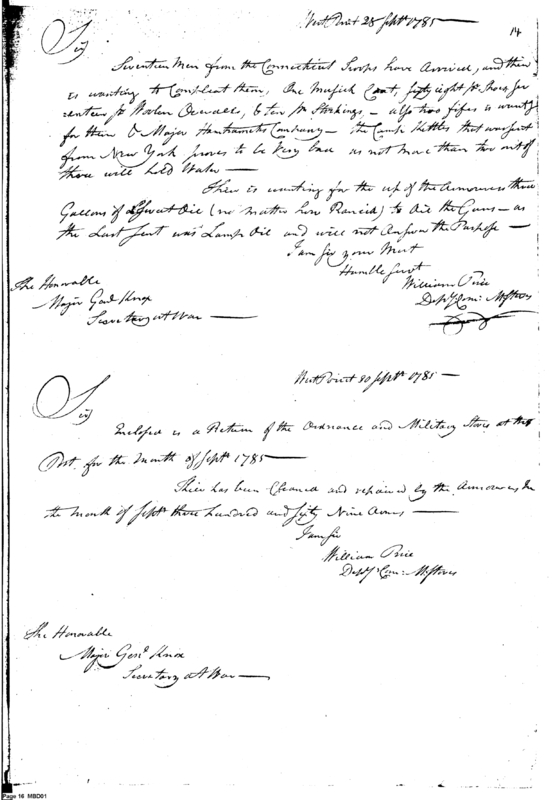 West Point 28 Septr 1785
14
Sir
Seventeen Men from the Connecticut Troops have Arrived, and there
is wanting to Compleat them, One Musick Coat, sixty eight pr Shoes, Se
venteen pr Woolen Overalls, & ten pr Stockings - also two fifes is wanting
for them & Major Company - the Camp Kettles that was sent
from New York proves to be Very bad as not more than two out of
three will hold Water
There is wanting for the use of the Armourers three
Gallons of Sweet Oil (no matter how Rancid) to Oil the Guns - as
the Last sent was Lamp Oil and will not Answer the Purpose
I am Sir your Most
Humble Servt
William Price
Depy Com: M Stores
The Honorable
Major Genl Knox
Secretary at War
West Point 30 Septr 1785
Sir
Enclosed is a Return of the Ordnance and Military Stores at this
Post for the Month of Septr 1785
There has been Cleaned and repaired by the Armourers In
the Month of Septr three hundred and Sixty Nine Arms
I am Sir
William Price
Depy Com: M Stores
The Honorable
Major Genl Knox
Secretary at War
Page 16 MBD01